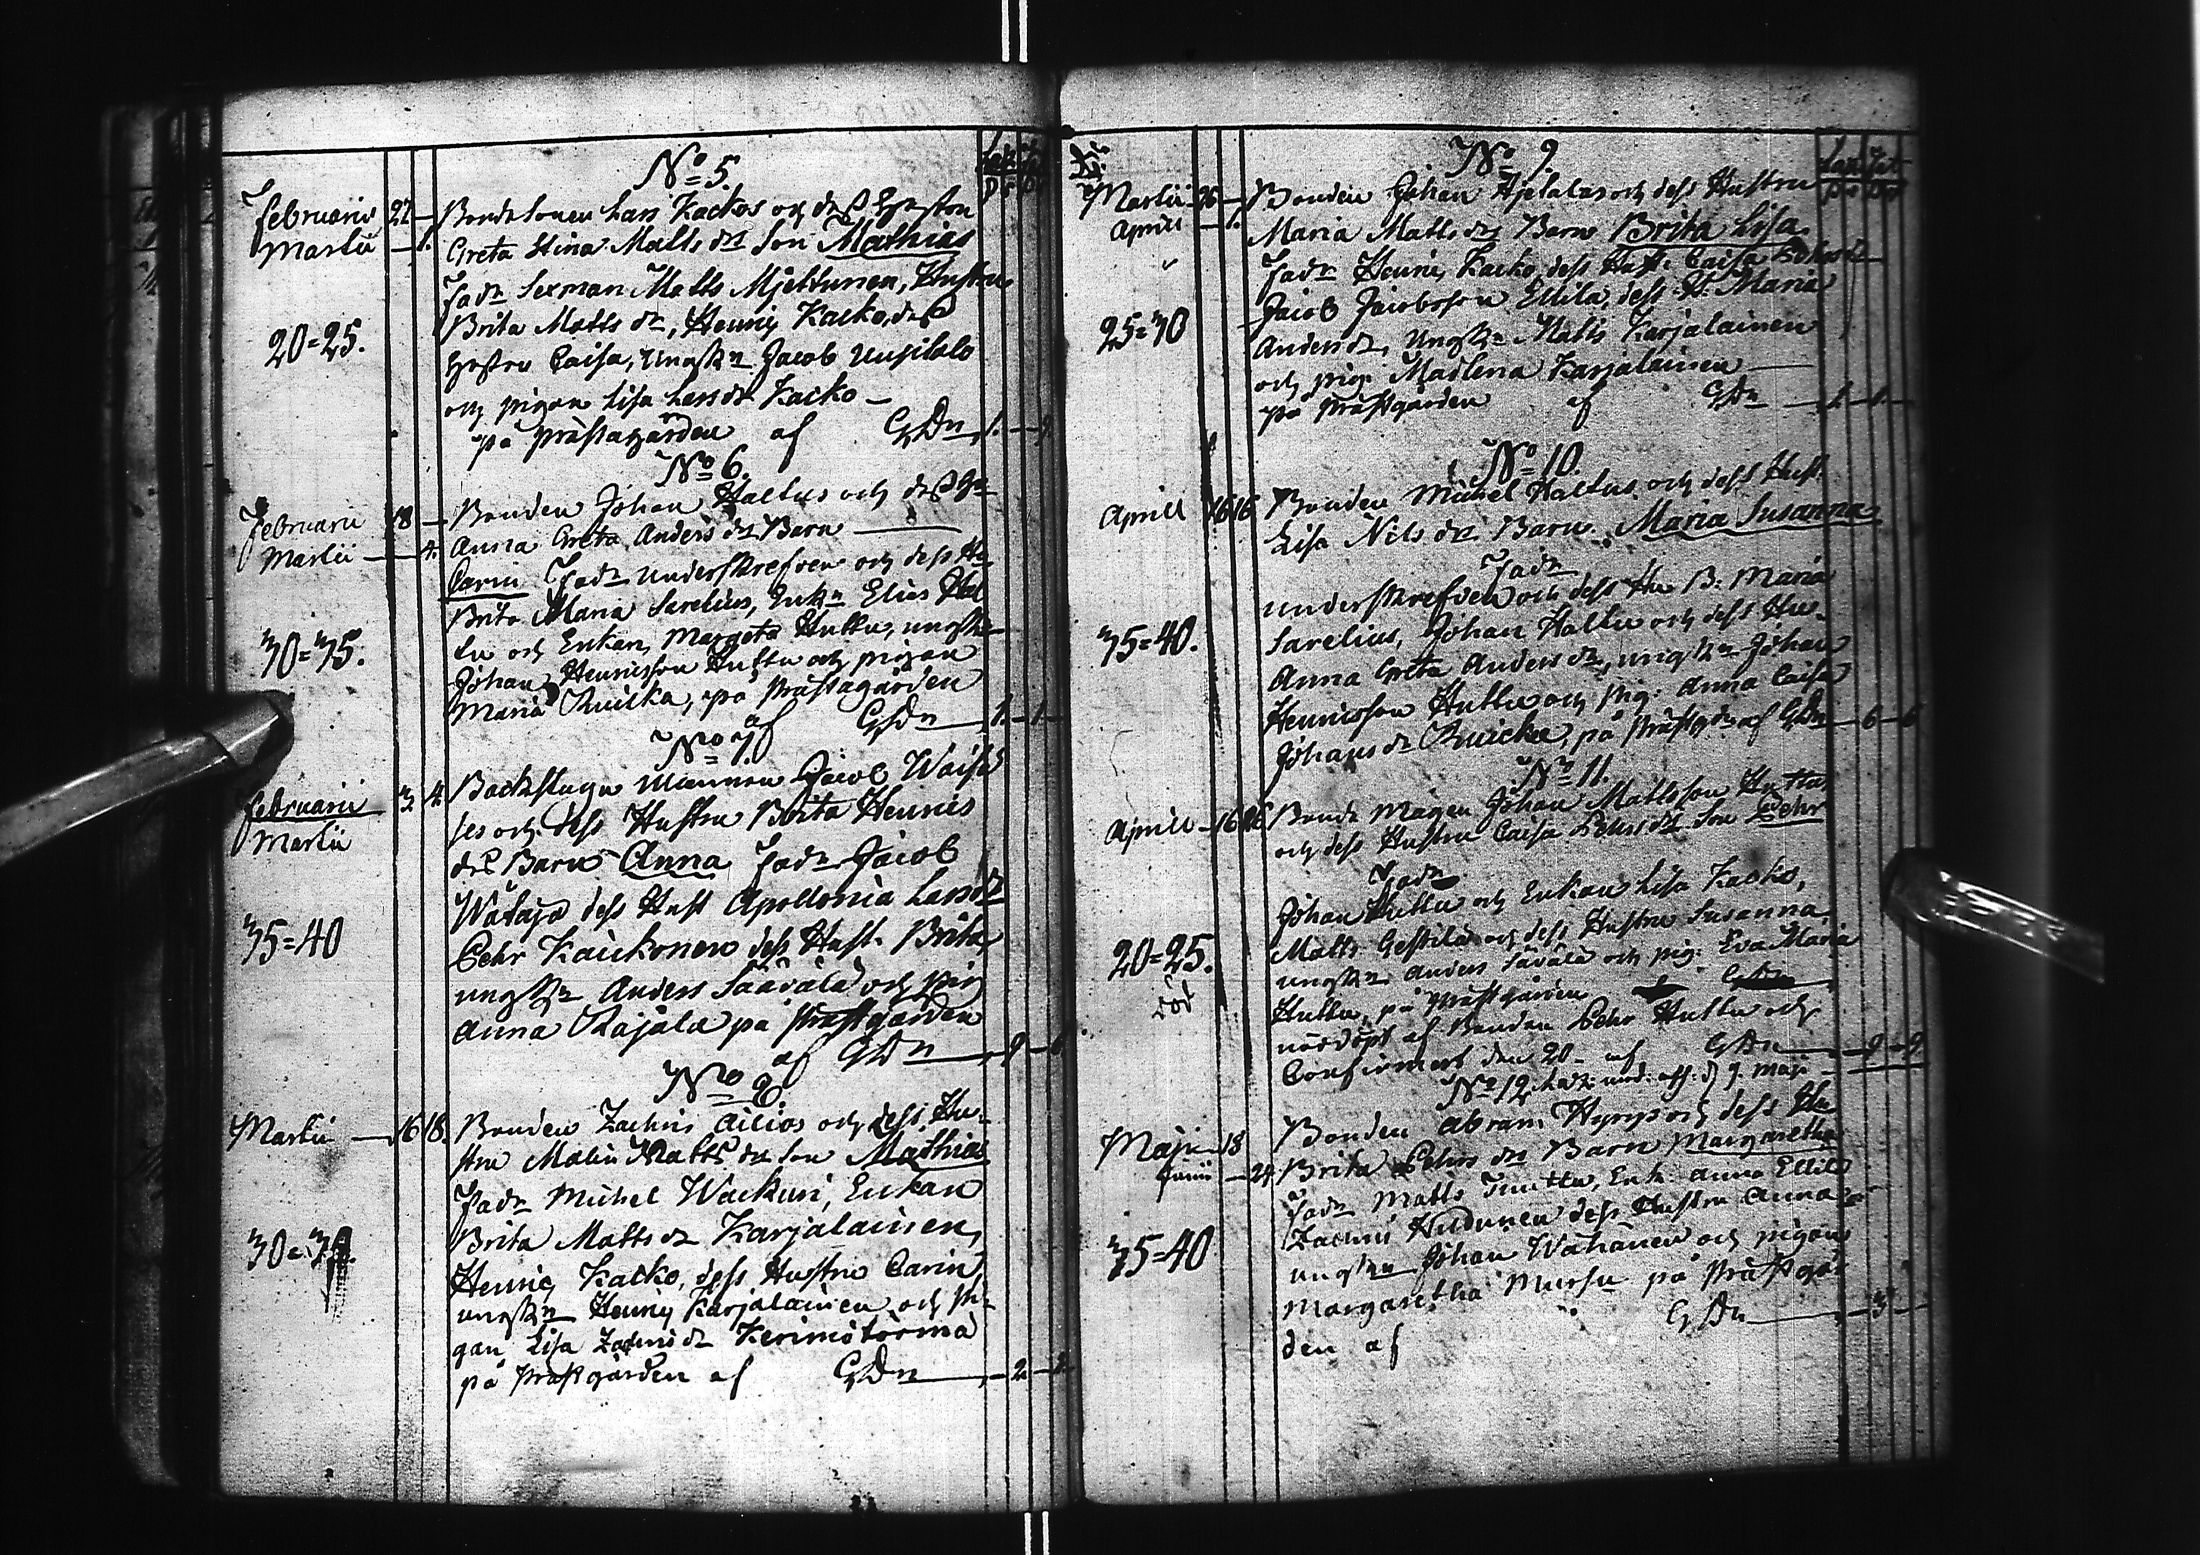 No 5.
Februarii 22 — Bondesonen Lars Kackos och dess Hustru
Martii — 1. Greta Stina Matts dr Son Mathias
Fadr Sexman Matts Mjettunen, Hustru
Brita Matts dr, Henric Kacko, dess
20=25. Hustru Caisa, Ungkn Jacob Uusitalo
och pigan Lisa Lars dr Kacko —
på prästagården af GDn 1. — 1
No 6.
Februarii 18 — Bonden Johan Haltus och dess Hu
Martii — 4. Anna Greta Anders dr Barn —
Carin Fadr underskrefven och dess Hu
Brita Maria Sarelius, Enkn Elias Hal
tu och Enkan Margeta Huttu, ungkn
30=35. Johan Henricsson Huttu och pigan
Maria Ruicka, på prästagården
af GDn 1. — 1
No 7.
Februarii 3. 4. Backstugu mannen Jacob Waisa
Martii ses och dess Hustru Brita Henrics
dr Barn Anna Fadr Jacob
Wätäjä dess Hust Apollonia Lars dr
35=40 Pehr Kaickonen dess Hust. Brita,
ungkn Anders Säävälä och pig
Anna Rajala på prästgården
af GDn 9 — 6
No 8.
Martii — 16 18. Bonden Zachris Ailios och dess Hu-
stru Malin Matts dr Son Mathias
Fadr Michel Wackuri, Enkan
Brita Matts dr Karjalainen,
30= Henric Kacko, dess Hustru Carin
ungkn Henric Karjalainen och pi-
gan Lisa Zachris dr Kerimötörmä
på prästgården af GDn — 2 — 2
No 9.
Martii 26 — Bonden Johan och dess Hustru
April — 1. Maria Matts dr Barn Brita Lisa.
Fadr Henric Kacko, dess Hust: Caisa
Jacob Jacobsson Ellilä, dess H: Maria
25=30 Anders dr, Ungkn Matts Karjalainen
och pig: Madlena Karjalainen —
på prästgården af GDn — 1 — 1
No 10.
Aprill 16 16 Bonden Michel Haltus och dess Hust
Lisa Nils dr Barn Maria Susanna
Fadr
underskrefven och dess Hu B: Maria
35=40. Sarelius, Johan Haltu och dess Hu-
Anna Greta Anders dr, ungkn Johan
Henricsson Huttu och pig: Anna Caisa
Johans dr Ruicka, på prästgdn af GDn — 6 — 6
No 11.
Aprill — 16 16 Bonde Mågen Johan Mattsson Huttus
och dess Hustru Caisa Pehrs dr Son Pehr
Fadr
Johan Huttu och Enkan Lisa Kacko,
Matts och dess Hustru Susanna,
20=25. ungkn Anders Säävälä och pig: Eva Maria
Huttu, på prästgården
nöddöpt af Bonden Pehr Huttu och
Confirmert den 20 — af GDn — 9 — 9
No 12
Maji 18 Bonden Abram Hyrys och dess Hu
Junii — 24 Brita Pehrs dr Barn Margaretha
Fadr Matts Enk: Anna Ellilä
Zachris Hudunen dess Hustru Anna
35=40 ungkn Johan Wähänen och pigan
Margaretha Mursu på prästgår
den af GDn — 3 —